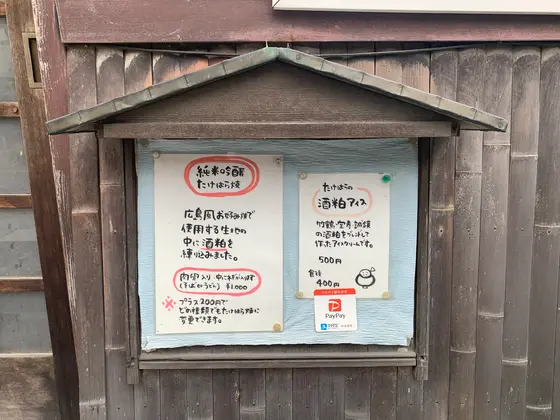 純米吟醸
たけはら焼
広島風お好み焼で
使用する生地の
中に酒粕を
練り込みました。
肉玉入り
(そばorうどん) ¥1000
※プラス200円で
どの種類でもたけはら焼に
変更できます。
たけはらの
酒粕アイス
竹鶴・宝寿・誠鏡
の酒粕をブレンドして
作ったアイスクリームです。
500円
食後
400円
PayPay